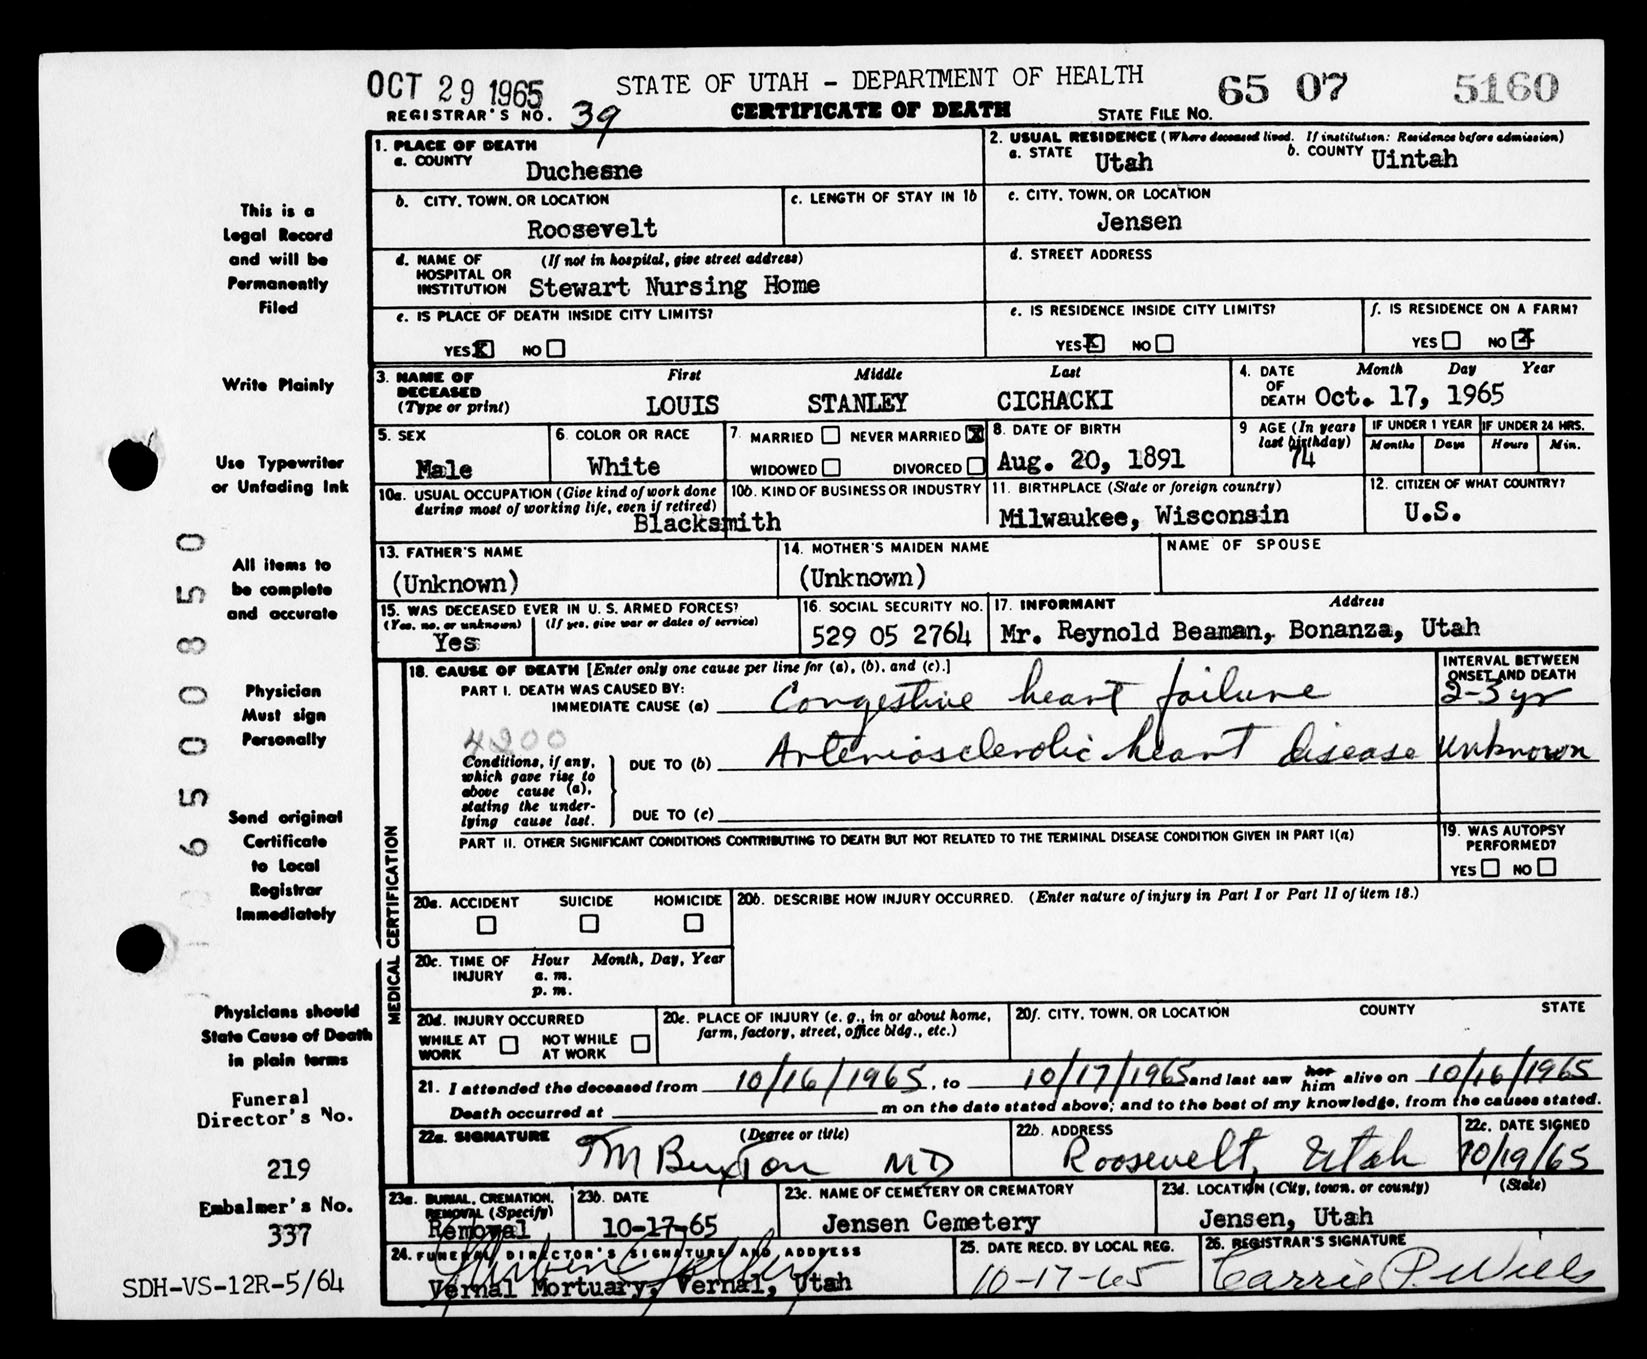 OCT 29 1965 STATE OF UTAH - DEPARTMENT OF HEALTH 65 07 5160
REGISTRAR'S NO. 39 CERTIFICATE OF DEATH STATE FILE NO.
1. PLACE OF DEATH
a. COUNTY Duchesne
2. USUAL RESIDENCE (Where deceased lived. If institution: Residence before admission)
a. STATE Utah b. COUNTY Uintah
b. CITY, TOWN, OR LOCATION Roosevelt
c. LENGTH OF STAY IN 1b
c. CITY, TOWN, OR LOCATION Jensen
d. NAME OF HOSPITAL OR INSTITUTION (If not in hospital, give street address) Stewart Nursing Home
d. STREET ADDRESS
e. IS PLACE OF DEATH INSIDE CITY LIMITS?
YES X NO
e. IS RESIDENCE INSIDE CITY LIMITS?
YES X NO
f. IS RESIDENCE ON A FARM?
YES NO X
3. NAME OF DECEASED (Type or print)
First Middle Last
LOUIS STANLEY CICHACKI
4. DATE OF DEATH Month Day Year
Oct. 17, 1965
5. SEX Male
6. COLOR OR RACE White
7. MARRIED NEVER MARRIED X
WIDOWED DIVORCED
8. DATE OF BIRTH Aug. 20, 1891
9 AGE (In years last birthday) 74
IF UNDER 1 YEAR Months Days
IF UNDER 24 HRS. Hours Min.
10a. USUAL OCCUPATION (Give kind of work done during most of working life, even if retired) Blacksmith
10b. KIND OF BUSINESS OR INDUSTRY
11. BIRTHPLACE (State or foreign country) Milwaukee, Wisconsin
12. CITIZEN OF WHAT COUNTRY? U.S.
13. FATHER'S NAME (Unknown)
14. MOTHER'S MAIDEN NAME (Unknown)
NAME OF SPOUSE
15. WAS DECEASED EVER IN U. S. ARMED FORCES?
(Yes, no, or unknown) (If yes, give war or dates of service)
Yes
16. SOCIAL SECURITY NO. 529 05 2764
17. INFORMANT Address
Mr. Reynold Beaman, Bonanza, Utah
MEDICAL CERTIFICATION
18. CAUSE OF DEATH [Enter only one cause per line for (a), (b), and (c).]
INTERVAL BETWEEN ONSET AND DEATH
PART I. DEATH WAS CAUSED BY:
IMMEDIATE CAUSE (a) Congestive heart failure 2-3 yr
4200
Conditions, if any, which gave rise to above cause (a), stating the underlying cause last.
DUE TO (b) Arteriosclerotic heart disease unknown
DUE TO (c)
PART II. OTHER SIGNIFICANT CONDITIONS CONTRIBUTING TO DEATH BUT NOT RELATED TO THE TERMINAL DISEASE CONDITION GIVEN IN PART I(a)
19. WAS AUTOPSY PERFORMED?
YES NO
20a. ACCIDENT SUICIDE HOMICIDE
20b. DESCRIBE HOW INJURY OCCURRED. (Enter nature of injury in Part I or Part II of item 18.)
20c. TIME OF INJURY Hour Month, Day, Year
a. m.
p. m.
20d. INJURY OCCURRED
WHILE AT WORK NOT WHILE AT WORK
20e. PLACE OF INJURY (e. g., in or about home, farm, factory, street, office bldg., etc.)
20f. CITY, TOWN, OR LOCATION COUNTY STATE
21. I attended the deceased from 10/16/1965, to 10/17/1965 and last saw her him alive on 10/16/1965
Death occurred at m on the date stated above; and to the best of my knowledge, from the causes stated.
22a. SIGNATURE (Degree or title) Buxton MD
22b. ADDRESS Roosevelt, Utah
22c. DATE SIGNED 10/19/65
23a. BURIAL, CREMATION, REMOVAL (Specify) Removal
23b. DATE 10-17-65
23c. NAME OF CEMETERY OR CREMATORY Jensen Cemetery
23d. LOCATION (City, town, or county) (State) Jensen, Utah
24. FUNERAL DIRECTOR'S SIGNATURE AND ADDRESS
Vernal Mortuary, Vernal, Utah
25. DATE RECD. BY LOCAL REG. 10-17-65
26. REGISTRAR'S SIGNATURE Carrie P. Wills
This is a
Legal Record
and will be
Permanently
Filed
Write Plainly
Use Typewriter
or Unfading Ink
All items to
be complete
and accurate
Physician
Must sign
Personally
Send original
Certificate
to Local
Registrar
Immediately
Physicians should
State Cause of Death
in plain terms
Funeral
Director's No.
219
Embalmer's No.
337
SDH-VS-12R-5/64
6500850